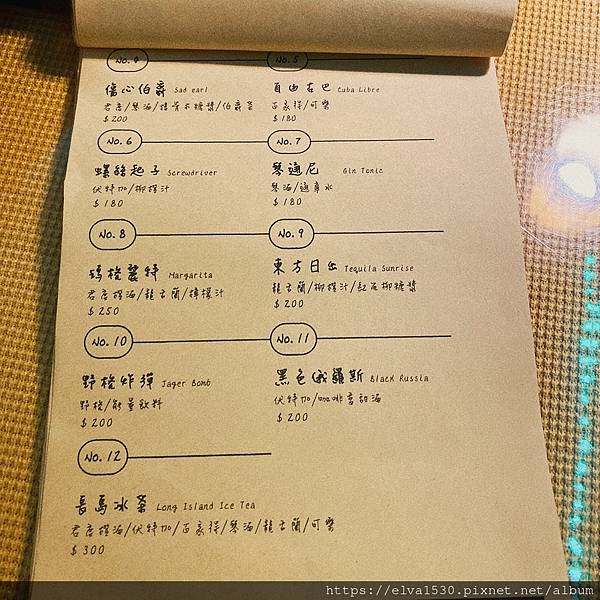 No. 4
傷心伯爵 Sad earl
君度/琴酒/接骨木糖漿/伯爵茶
$200
No. 5
自由古巴 Cuba Libre
百家得/可樂
$180
No. 6
螺絲起子 Screwdriver
伏特加/柳橙汁
$180
No. 7
琴通尼 Gin Tonic
琴酒/通寧水
$180
No. 8
瑪格麗特 Margarita
君度橙酒/龍舌蘭/檸檬汁
$250
No. 9
東方日出 Tequila Sunrise
龍舌蘭/柳橙汁/紅石榴糖漿
$200
No. 10
野格炸彈 Jager Bomb
野格/能量飲料
$200
No. 11
黑色俄羅斯 Black Russia
伏特加/咖啡香甜酒
$200
No. 12
長島冰茶 Long Island Ice Tea
君度橙酒/伏特加/百家得/琴酒/龍舌蘭/可樂
$300
https://elva1530.pixnet.net/album